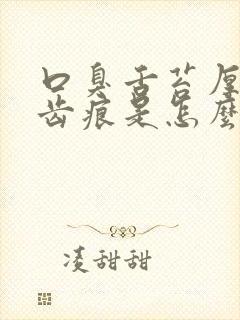 口臭舌苔厚
齿痕是怎麽
凌甜甜